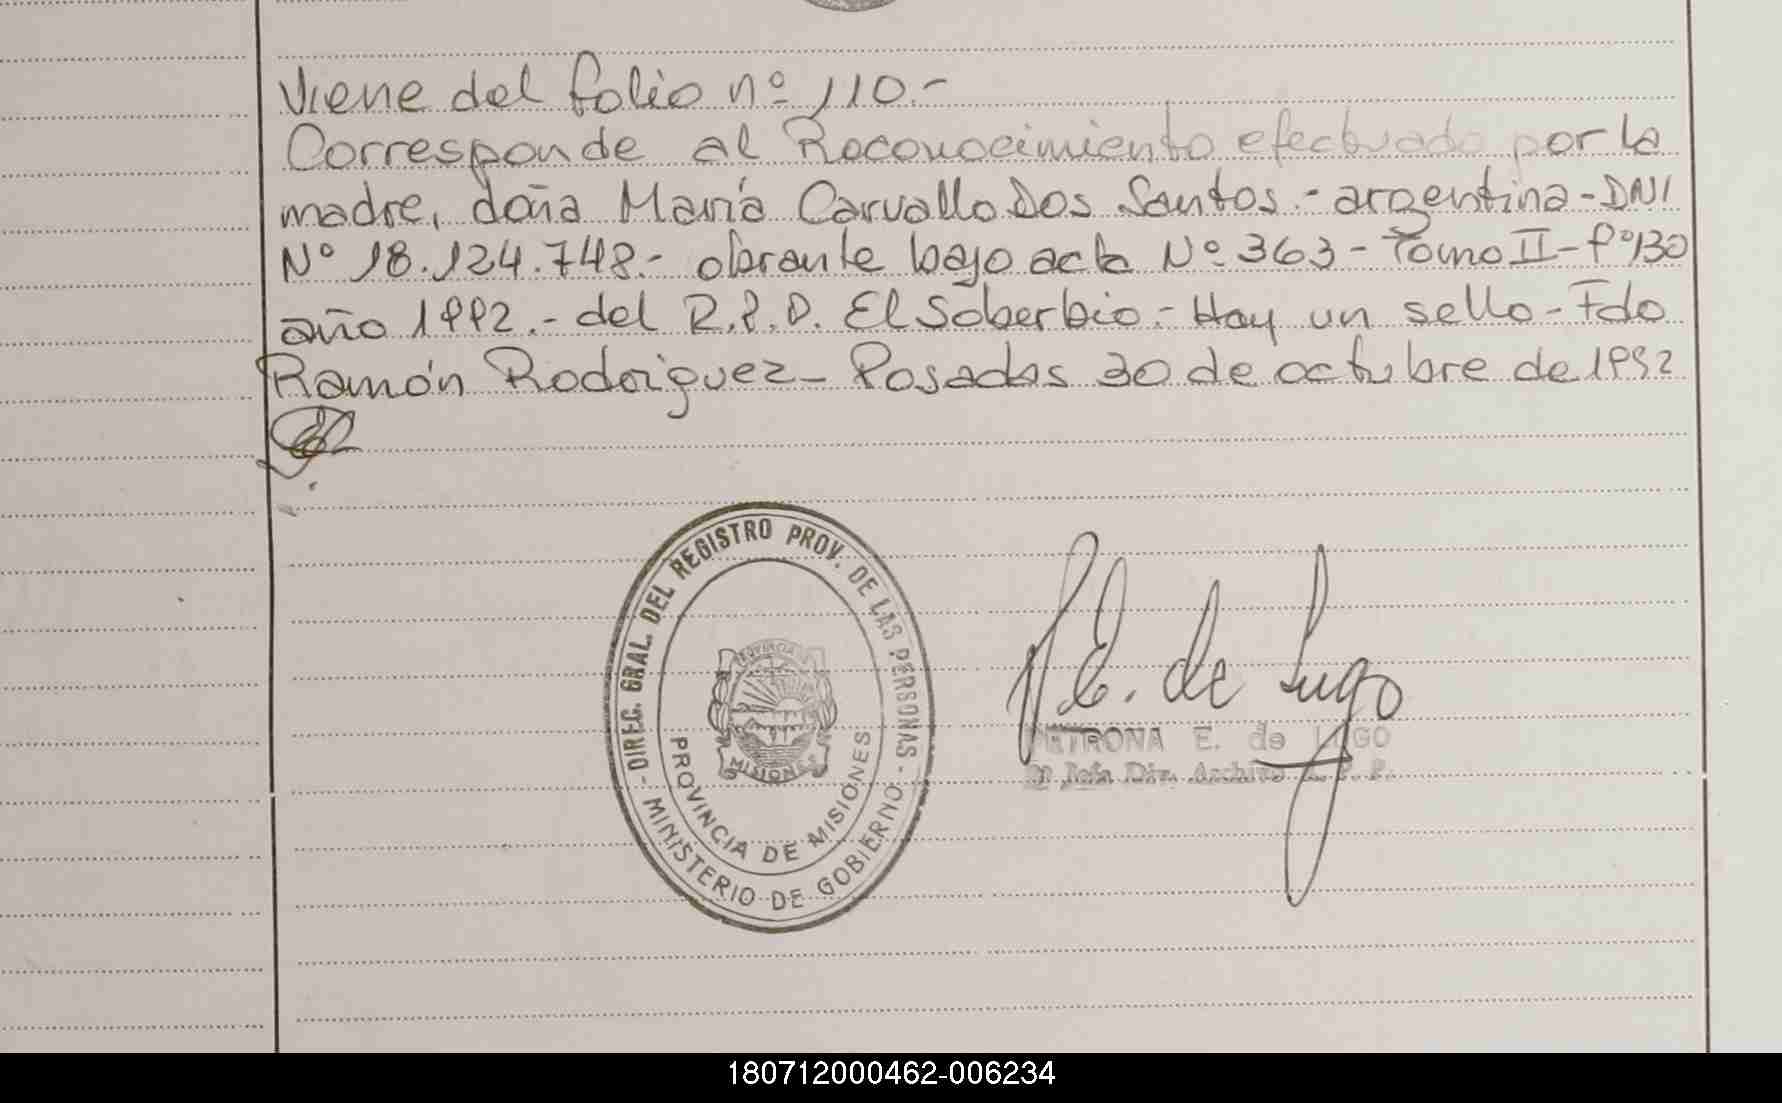 Viene del folio nº 110.-
Corresponde al Reconocimiento efectuado por la
madre, doña María Carvallo Dos Santos.- argentina - DNI
Nº 18.124.748.- obrante bajo acta Nº 363 - Tomo II - fº 130
año 1992.- del R.P.D. El Soberbio.- Hay un sello - Fdo
Ramón Rodriguez - Posadas 30 de octubre de 1992
- DIREC. GRAL. DEL REGISTRO PROV. DE LAS PERSONAS -
MINISTERIO DE GOBIERNO
PROVINCIA DE MISIONES
PROVINCIA
MISIONES
P.E. de Lugo
PETRONA E. de LUGO
Jefa Div. Archivo R. P. P.
180712000462-006234